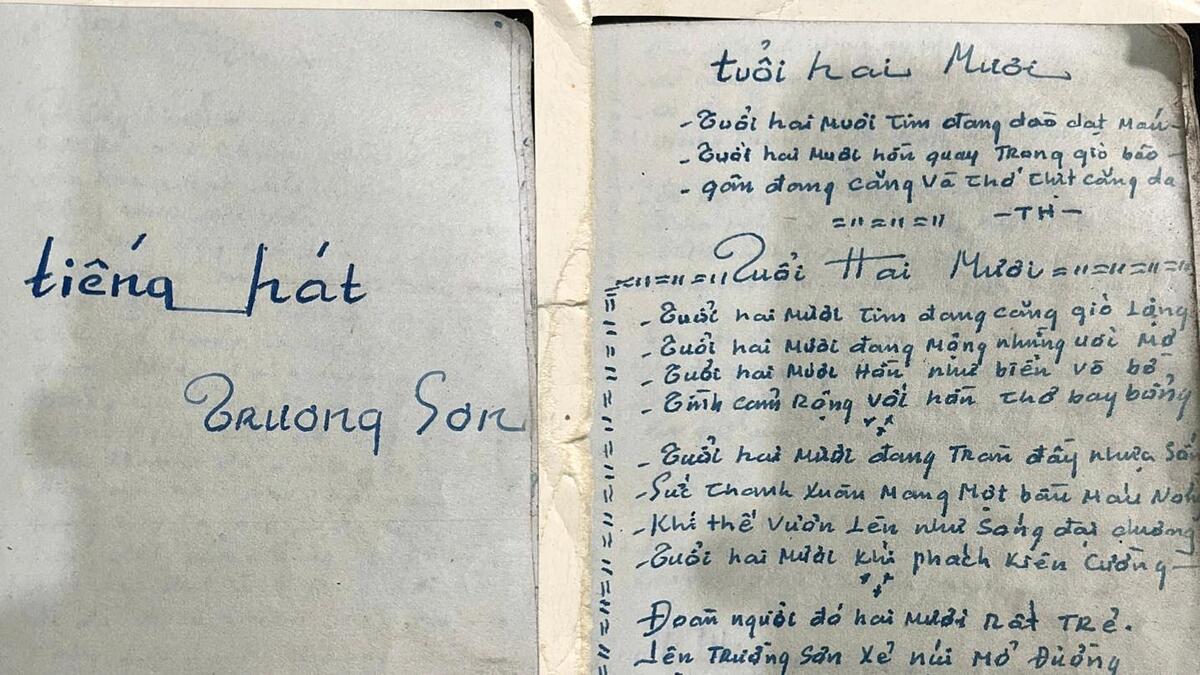 tiếng hát
Trương Sơn
tuổi hai Mươi
- Tuổi hai Mươi Tim đang dào dạt Máu -
- Tuổi hai Mươi hồn quay Trong gió bão -
- gân đang căng Và Thớ Thịt căng da
="="="
- TH -
="="="Tuổi Hai Mươi="="="="
- Tuổi hai Mươi Tim đang căng gió Lộng
- Tuổi hai Mươi đang Mộng những ước Mơ
- Tuổi hai Mươi Hồn như biển vỗ bờ,
- Tình cảm Rộng Với hồn Thơ bay bổng
- Tuổi hai Mươi đang Tràn đầy nhựa
- Sức Thanh Xuân Mang Một bầu Máu
- Khí thế Vươn Lên như Sóng đại dương
- Tuổi hai Mươi Khí phách Kiên Cường -
Đoàn người đó hai Mươi Rất TRẻ.
Lên Trường Sơn Xẻ núi Mở Đường